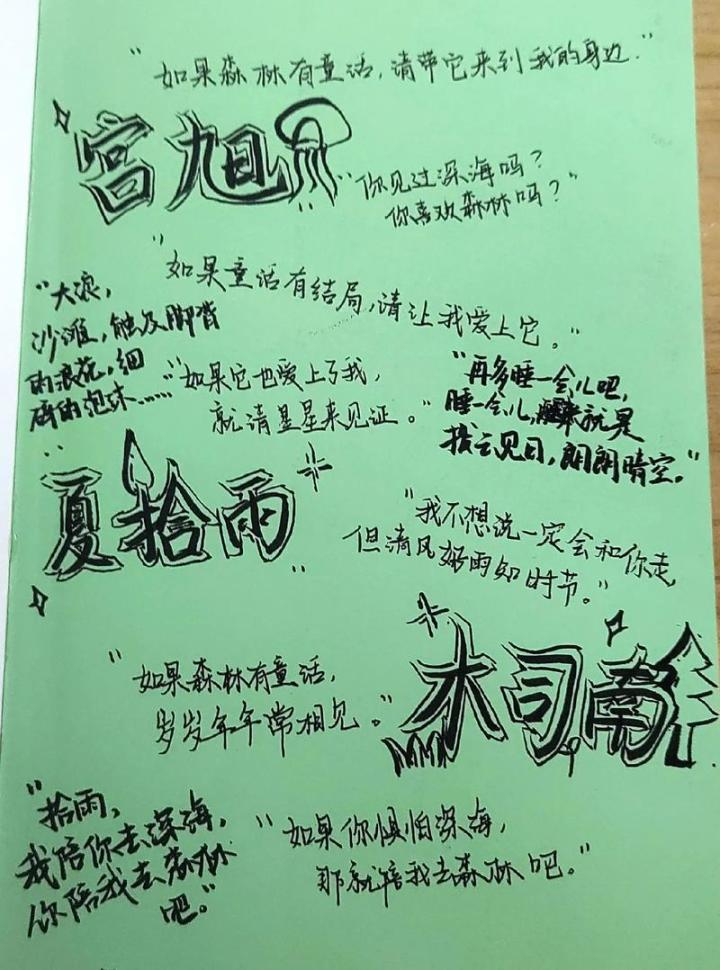 "如果森林有童话,请带它来到我的身边."
宫旭
"你见过深海吗?
你喜欢森林吗?"
"如果童话有结局,请让我爱上它。"
"大浪,
沙滩,触及脚背
的浪花,细
碎的泡沫……"
"如果它也爱上了我,
就请星星来见证。"
"再多睡一会儿吧,
睡一会儿,醒来就是
拨云见日,朗朗晴空。"
夏拾雨
"我不想说一定会和你走,
但清风好雨知时节。"
木司南
"如果森林有童话,
岁岁年年常相见。"
"拾雨,
我陪你去深海,
你陪我去森林
吧。"
"如果你惧怕深海,
那就陪我去森林吧。"